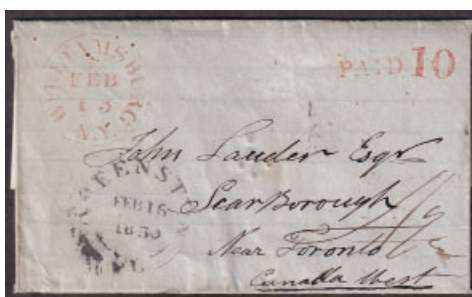 WILLIAMSBURG
FEB
13
N.Y.
PAID 10
John Lauder Esqr
Scarborough
Near Toronto
Canada West
QUEENST
FEB 16
1850